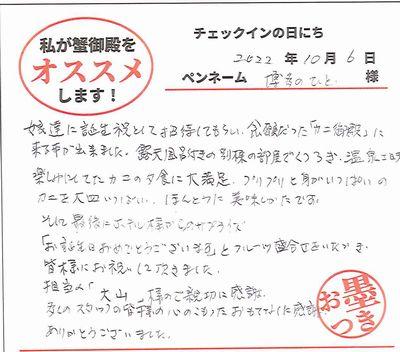 私が蟹御殿を
オススメ
します!
チェックインの日にち
2022 年 10 月 6 日
ペンネーム 博多のひと 様
娘達に誕生祝として招待してもらい、念願だった「カニ御殿」に
来る事が出来ました。露天風呂付きの別棟の部屋でくつろぎ、温泉
楽しみにしてたカニの夕食に大満足、プリプリと身がいっぱいの
カニを大皿いっぱい、ほんとうに美味しかったです。
そして最後にホテル様からのサプライズ
「お誕生日おめでとうございます」とフルーツ盛合せをいただき
皆様にお祝いして頂きました。
担当の「大山」様のご親切に感謝。
スタッフの皆様の心のこもったおもてなしに感謝
ありがとうございました。
お墨つき